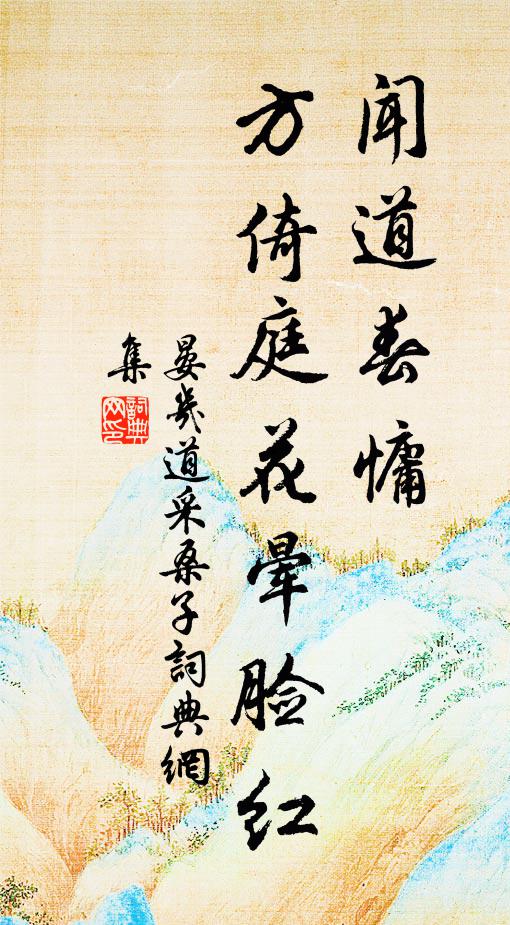 闻道春慵
方倚庭花晕脸红
晏几道采桑子词典網
集
詞典
网印